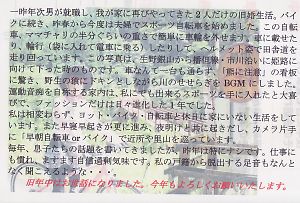 一昨年次男が就職し、我が家に再びやってきた2人だけの田舎生活。バイ
クに続き、昨春から今度は夫婦でスポーツ自転車を始めました。この自転
車、ママチャリの半分ぐらいの重さで簡単に車輪を外せます。車に載せた
り、輪行(袋に入れて電車に乗る)したりして、ヘルメット姿で田舎道を
走り回っています。この写真は、生野銀山から播但線・市川沿いに姫路に
向けて下った時のものです。車なんて一台も通らず、「熊に注意」の看板
に驚き、野生の猿にドキッとしながら川のせせらぎを BGM にしました。
運動音痴を自称する家内は、私にでも出来るスポーツを手に入れたと大喜
びで、ファッションだけは日々進化した1年でした。
私は相変わらず、ヨット・バイク・自転車と休日に家にいない生活をして
います。また早寝早起きが更に進み、夜明けと共に起きだし、カメラ片手
に「早朝自転車 or バイク」で近所や里山を巡っています。
毎年、息子たちの話題を書いてきましたが、昨年は特にナシです。仕事に
も慣れ、ますます自信過剰気味です。私の戸籍から脱出する足音もなんと
なく聞こえるような・・
旧年中はお世話になりました。今年もよろしくお願いいたします。